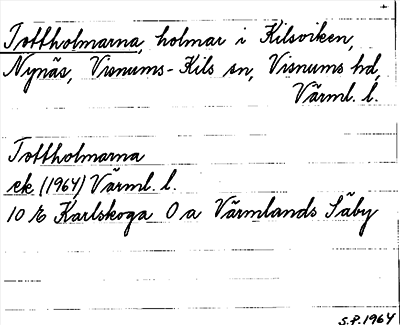 Tottholmarna, holmar i Kilsviken,
Nynäs, Visnums-Kils sn, Visnums hd,
Värml. l.
Tottholmarna
ek (1964) Värml. l.
10 E Karlskoga O a Värmlands Säby
S.P. 1964